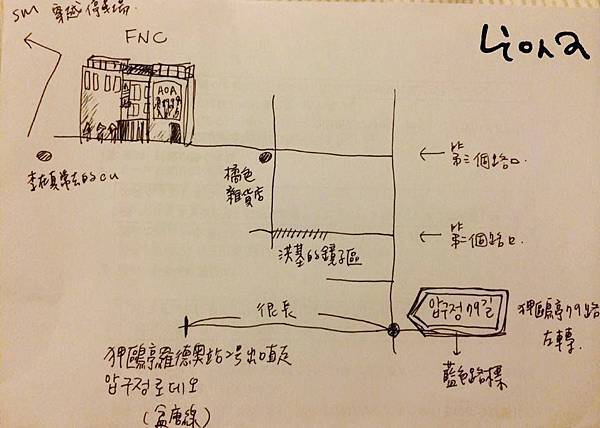 SM 穿越停車場.
FNC
Liona
AOA
李在真常去的cu
橘色
雜貨店
← 第三個路口.
← 第二個路口.
洪基的鏡子區
很長
압구정 79길
狎鷗亭79路
左轉.
藍色路標
狎鷗亭羅德奧站2號出口直走
압구정로데오
(盆唐線)